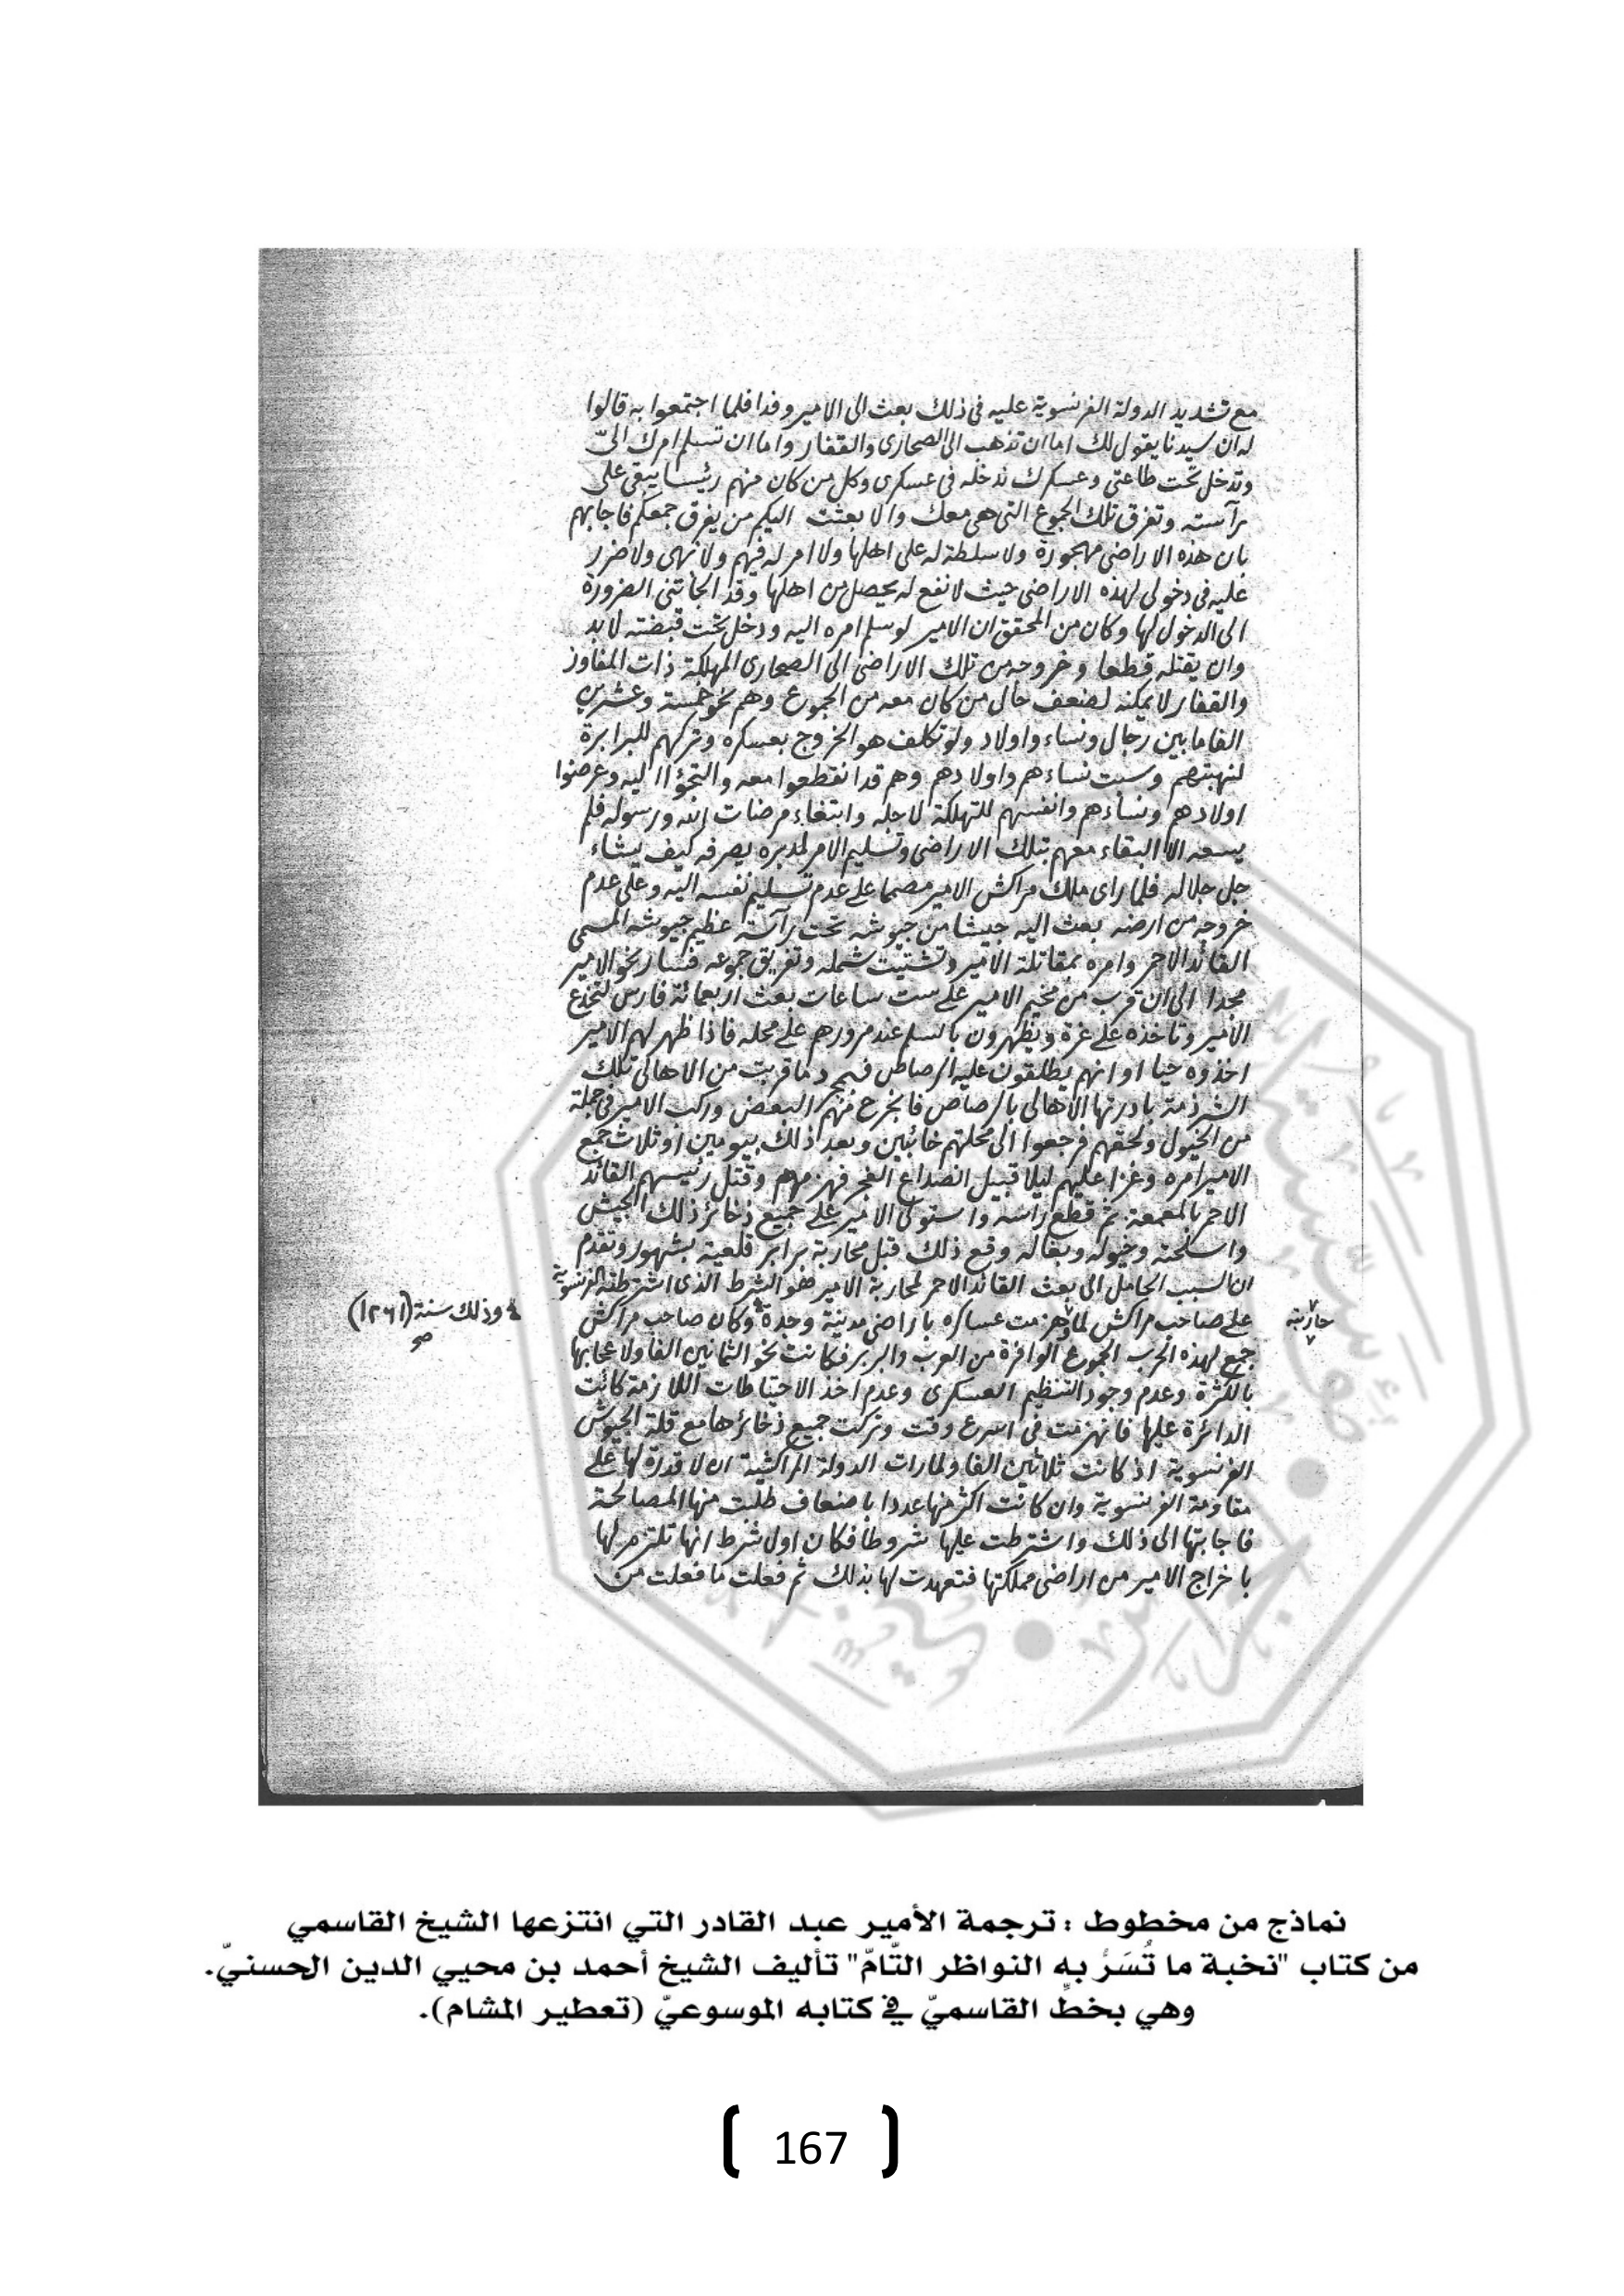 مع تشديد الدولة الفرنسوية عليه فى ذلك بعث الى الامير وفدا فلما اجتمعوا به قالوا
له ان سيدنا يقول لك اما ان تذهب الى الصحارى والقفار واما ان تسلم امرك الىّ
وتدخل تحت طاعتى وعسكرك ندخله فى عسكرى وكل من كان منهم رئيسا يبقى على
رآسته وتفرق تلك الجموع التى هى معك والا بعثت اليكم من يفرق جمعكم فاجابهم
بان هذه الاراضى مهجورة ولا سلطة له على اهلها ولا امر له فيهم ولا نهى ولا ضرر
عليه فى دخولى لهذه الاراضى حيث لا نفع له يحصل من اهلها وقد الجاتنى الضرورة
الى الدخول لها وكان من المحقق ان الامير لو سلم امره اليه ودخل تحت قبضته لابد
وان يقتله قطعا وخروجه من تلك الاراضى الى الصحارى المهلكة ذات المفاوز
والقفار لا يمكنه لضعف حال من كان معه من الجموع وهم نحو خمسة وعشرين
الفا ما بين رجال ونساء واولاد ولو تكلف هو الخروج بعسكره وتركهم للبرابرة
لنهبتهم وسبت نساءهم واولادهم وهم قد انقطعوا معه والتجؤا اليه وعرضوا
اولادهم ونساءهم وانفسهم للتهلكة لاجله وابتغاء مرضات الله ورسوله فلم
يسعه الا البقاء معهم بتلك الاراضى وتسليم الامر لمدبره يصرفه كيف يشاء
جل جلاله فلما راى ملك مراكش الامير مصمما على عدم تسليم نفسه اليه وعلى عدم
خروجه من ارضه بعث اليه جيشا من جيوشه تحت رآسة عظيم جيوشه المسمى
القائد الاحمر وامره بمقاتلة الامير وتشتيت شمله وتفريق جموعه فسار نحو الامير
مجدا الى ان قرب من مخيم الامير على ست ساعات بعث اربعمائة فارس لتخدع
الامير وتاخذه على غرة ويظهرون بالسلم عند مرورهم على محله فاذا ظهر لهم الامير
اخذوه حيا او انهم يطلقون عليه الرصاص فبمجرد ما قربت من الاهالى تلك
الشرذمة بادرتها الاهالى بالرصاص فانجرح منهم البعض وركب الامير فى جملة
من الخيول ولحقهم فرجعوا الى محلتهم خائبين وبعد ذلك بيومين او ثلاث جمع
الامير امره وغزا عليهم ليلا قبيل انصداع الفجر فهزمهم وقتل رئيسهم القائد
الاحمر بالمعمعة ثم قطع راسه واستولى الامير على جميع ذخائر ذلك الجيش
واسلحته وخيوله وبغاله وقع ذلك قبل محاربة برابر قلعية بشهور وتقدم
ان السبب الحامل الى بعث القائد الاحمر لمحاربة الامير هو الشرط الذى اشترطته الفرنسوية
على صاحب مراكش لما هزمت عساكره باراضى مدينة وجدة وكان صاحب مراكش
حاربته
وذلك سنة (١٢٦١)
صح
جمع لهذه الحرب الجموع الوافرة من العرب والبربر فكانت نحو الثمانين الفا ولاعجابها
بالكثرة وعدم وجود التنظيم العسكرى وعدم اخذ الاحتياطات اللازمة كانت
الدائرة عليها فانهزمت فى اسرع وقت وتركت جميع ذخائرها مع قلة الجيوش
الفرنسوية اذ كانت ثلاثين الفا ولما رات الدولة المراكشية ان لا قدرة لها على
مقاومة الفرنسوية وان كانت اكثر منها عددا باضعاف طلبت منها المصالحة
فاجابتها الى ذلك واشترطت عليها شروطا فكان اول شرط انها تلتزم لها
باخراج الامير من اراضى مملكتها فتعهدت لها بذلك ثم فعلت ما فعلت من
نماذج من مخطوط : ترجمة الأمير عبد القادر التي انتزعها الشيخ القاسمي
من كتاب "نخبة ما تُسَرُّ به النواظر التّامّ" تأليف الشيخ أحمد بن محيي الدين الحسنيّ.
وهي بخطِّ القاسميّ في كتابه الموسوعيّ (تعطير المشام).
167